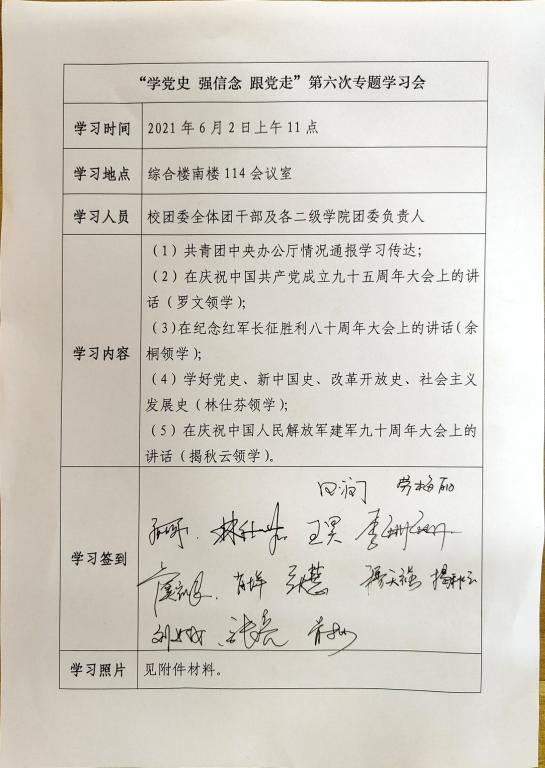 “学党史 强信念 跟党走”第六次专题学习会
学习时间 2021年6月2日上午11点
学习地点 综合楼南楼114会议室
学习人员 校团委全体团干部及各二级学院团委负责人
学习内容
（1）共青团中央办公厅情况通报学习传达；
（2）在庆祝中国共产党成立九十五周年大会上的讲
话（罗文领学）；
（3）在纪念红军长征胜利八十周年大会上的讲话（余
桐领学）；
（4）学好党史、新中国史、改革开放史、社会主义
发展史（林仕芬领学）；
（5）在庆祝中国人民解放军建军九十周年大会上的
讲话（揭秋云领学）。
学习签到
田润
王昊
张慧 揭秋云
张亮
学习照片 见附件材料。